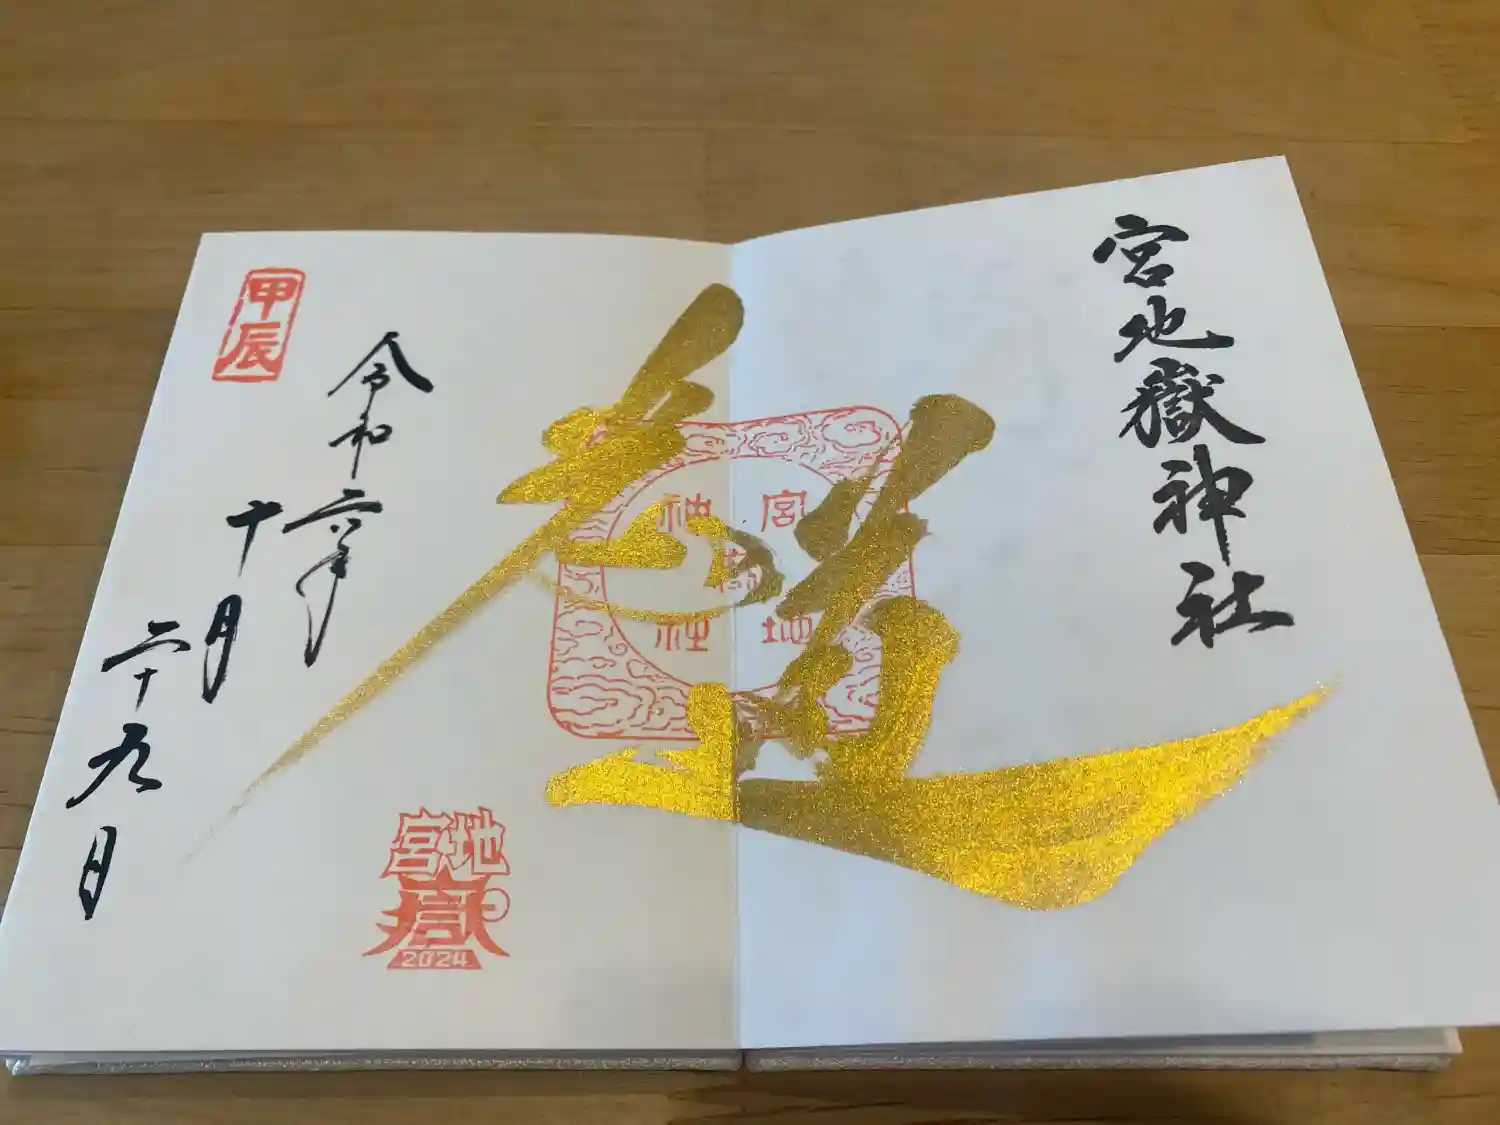 宮地嶽神社
宮地
嶽
神社
令和六年
十月
二十九日
甲辰
宮地
嶽
2024